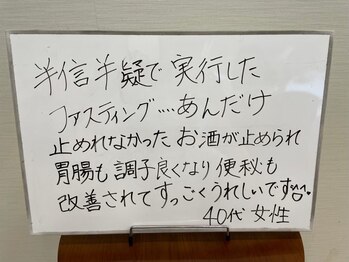 半信半疑で実行した
ファスティング....あんだけ
止めれなかったお酒が止められ
胃腸も調子良くなり便秘も
改善されてすっごくうれしいです
40代 女性